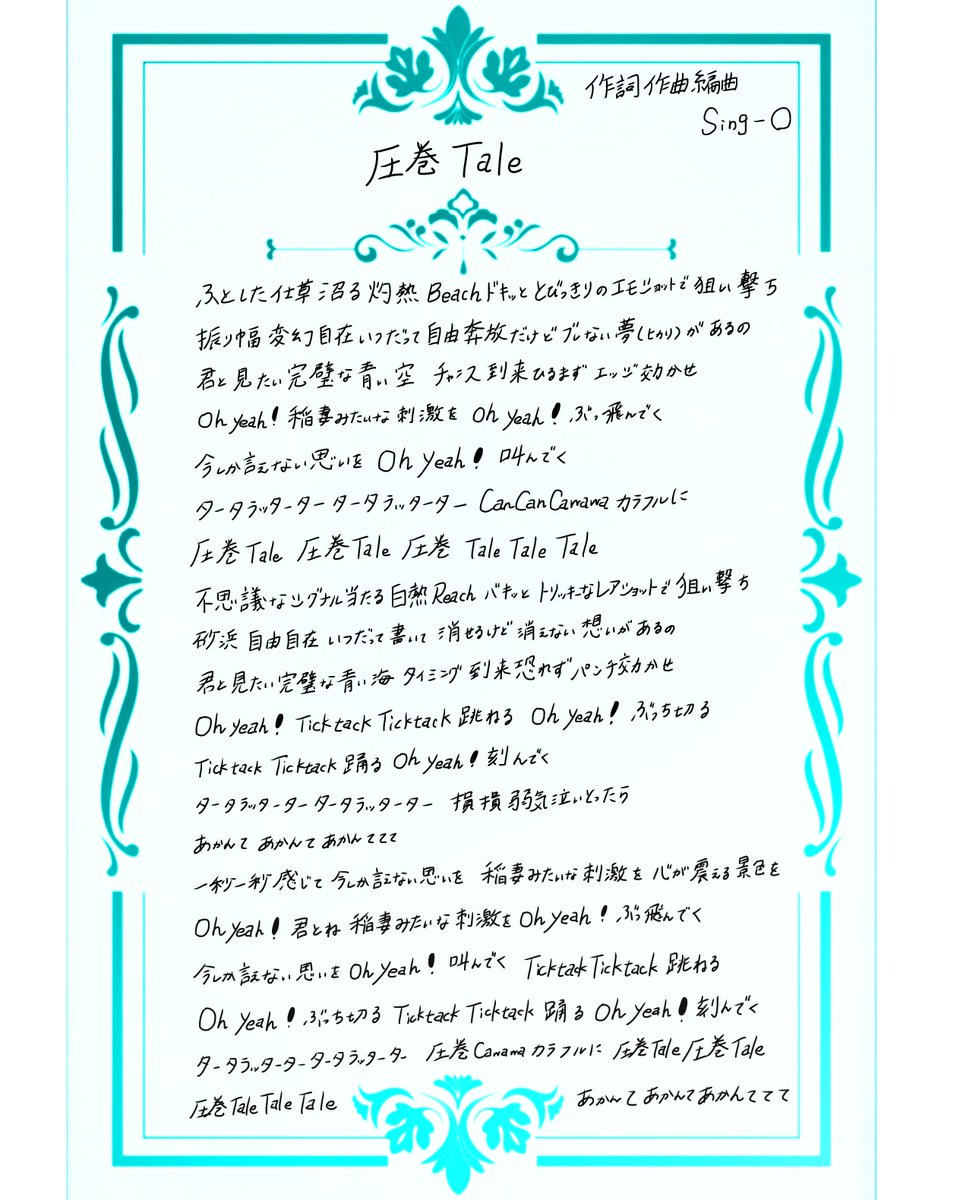 作詞作曲編曲
Sing-O
圧巻 Tale
ふとした仕草沼る灼熱 Beachドキッととびっきりのエモショットで狙い撃ち
振り幅変幻自在いつだって自由奔放だけどブレない夢(ヒカリ)があるの
君と見たい完璧な青い空 チャンス到来ひるまずエッジ効かせ
Oh yeah!稲妻みたいな刺激を Oh yeah!ぶっ飛んでく
今しか言えない思いを Oh yeah! 叫んでく
タータラッターター タータラッターター CanCanCanana カラフルに
圧巻 Tale 圧巻Tale 圧巻 Tale Tale Tale
不思議なシグナル当たる白熱Reach バキッとトリッキーなレアショットで狙い撃ち
砂浜 自由自在 いつだって書いて 消せるけど消えない想いがあるの
君と見たい完璧な青い海 タイミング到来恐れずパンチ効かせ
Oh yeah! Ticktack Ticktack 跳ねる Oh yeah! ぶっち切る
Ticktack Ticktack 踊る Oh yeah!刻んでく
タータラッターター タータラッターター 損損弱気泣いとったら
あかんて あかんて あかんててて
一秒一秒感じて 今しか言えない思いを 稲妻みたいな刺激を 心が震える景色を
Oh yeah! 君とね 稲妻みたいな刺激をOh yeah! ぶっ飛んでく
今しか言えない思いをOh yeah! 叫んでく Ticktack Ticktack 跳ねる
Oh yeah!ぶっち切る Ticktack Ticktack 踊る Oh yeah!刻んでく
タータラッターター タータラッターター 圧巻Canana カラフルに 圧巻Tale圧巻Tale
圧巻Tale Tale Tale あかんて あかんて あかんててて